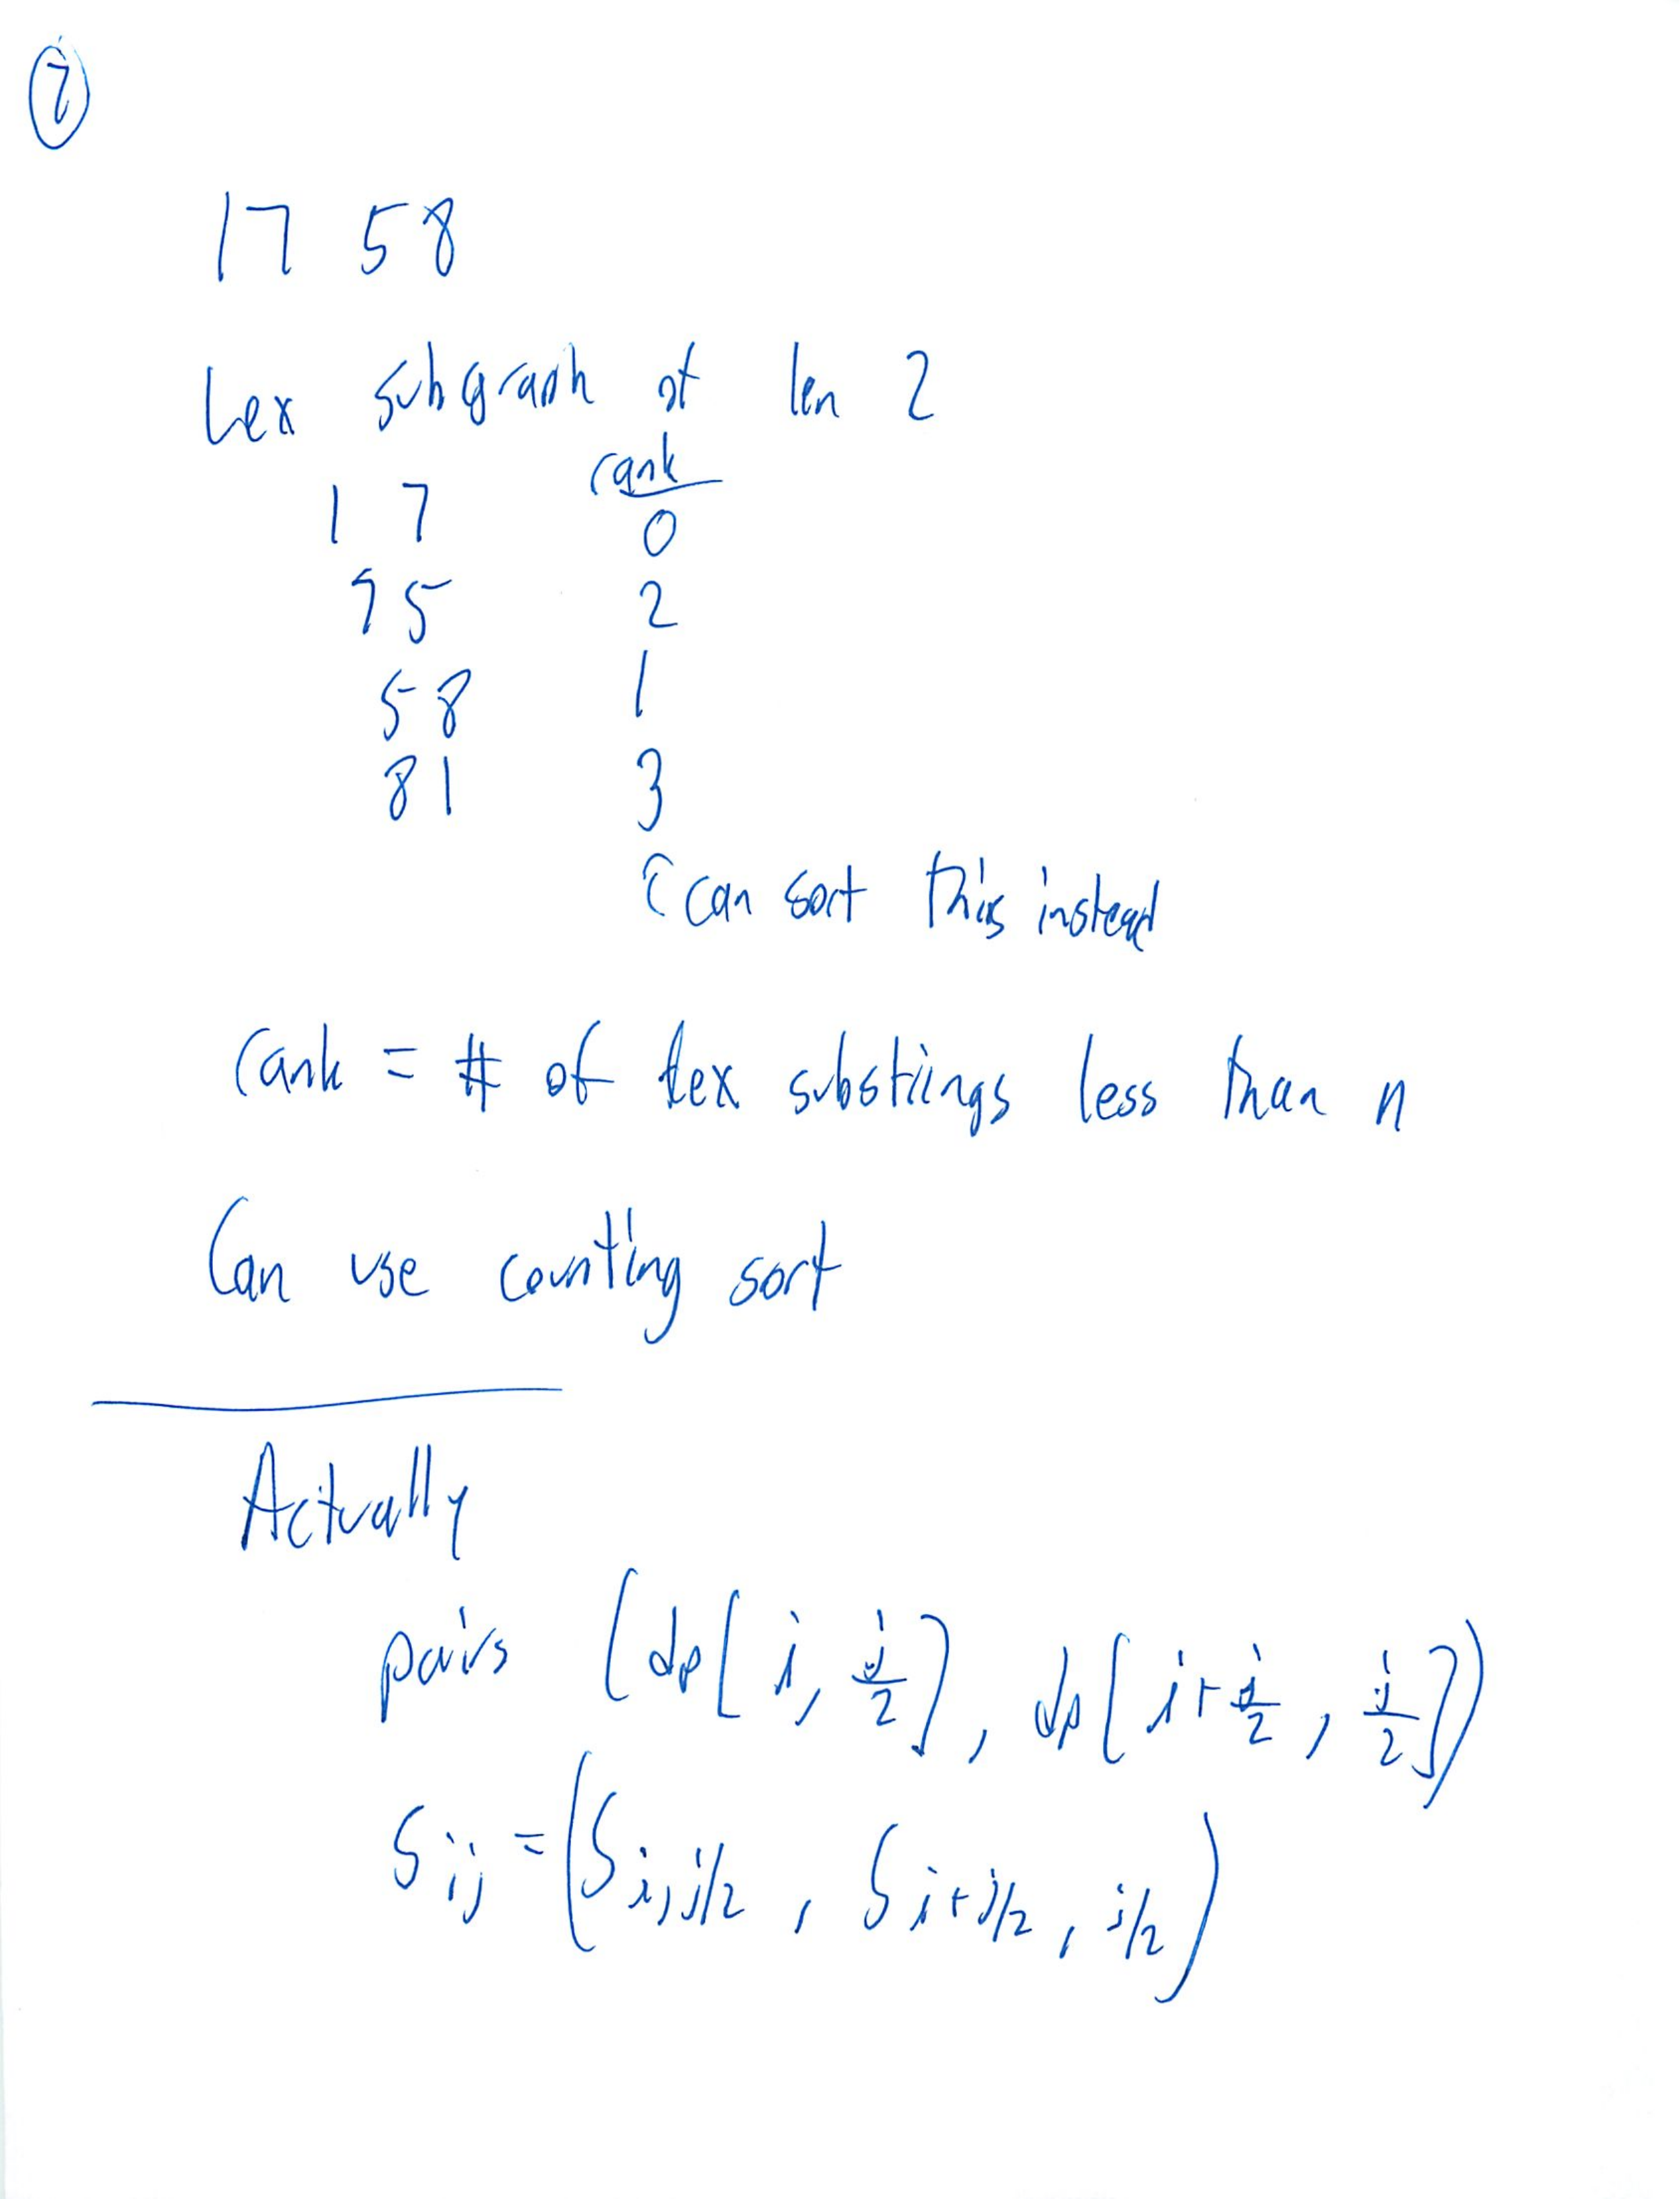 7
17 58
Lex subgraph of len 2
rank
1 7 0
7 5 2
5 8 1
8 1 3
can sort this instead
rank = # of lex substrings less than n
Can use counting sort
Actually
pairs (dp[i, j/2], dp[i+j/2, j/2])
S ij = (S i,j/2, S i+j/2, j/2)